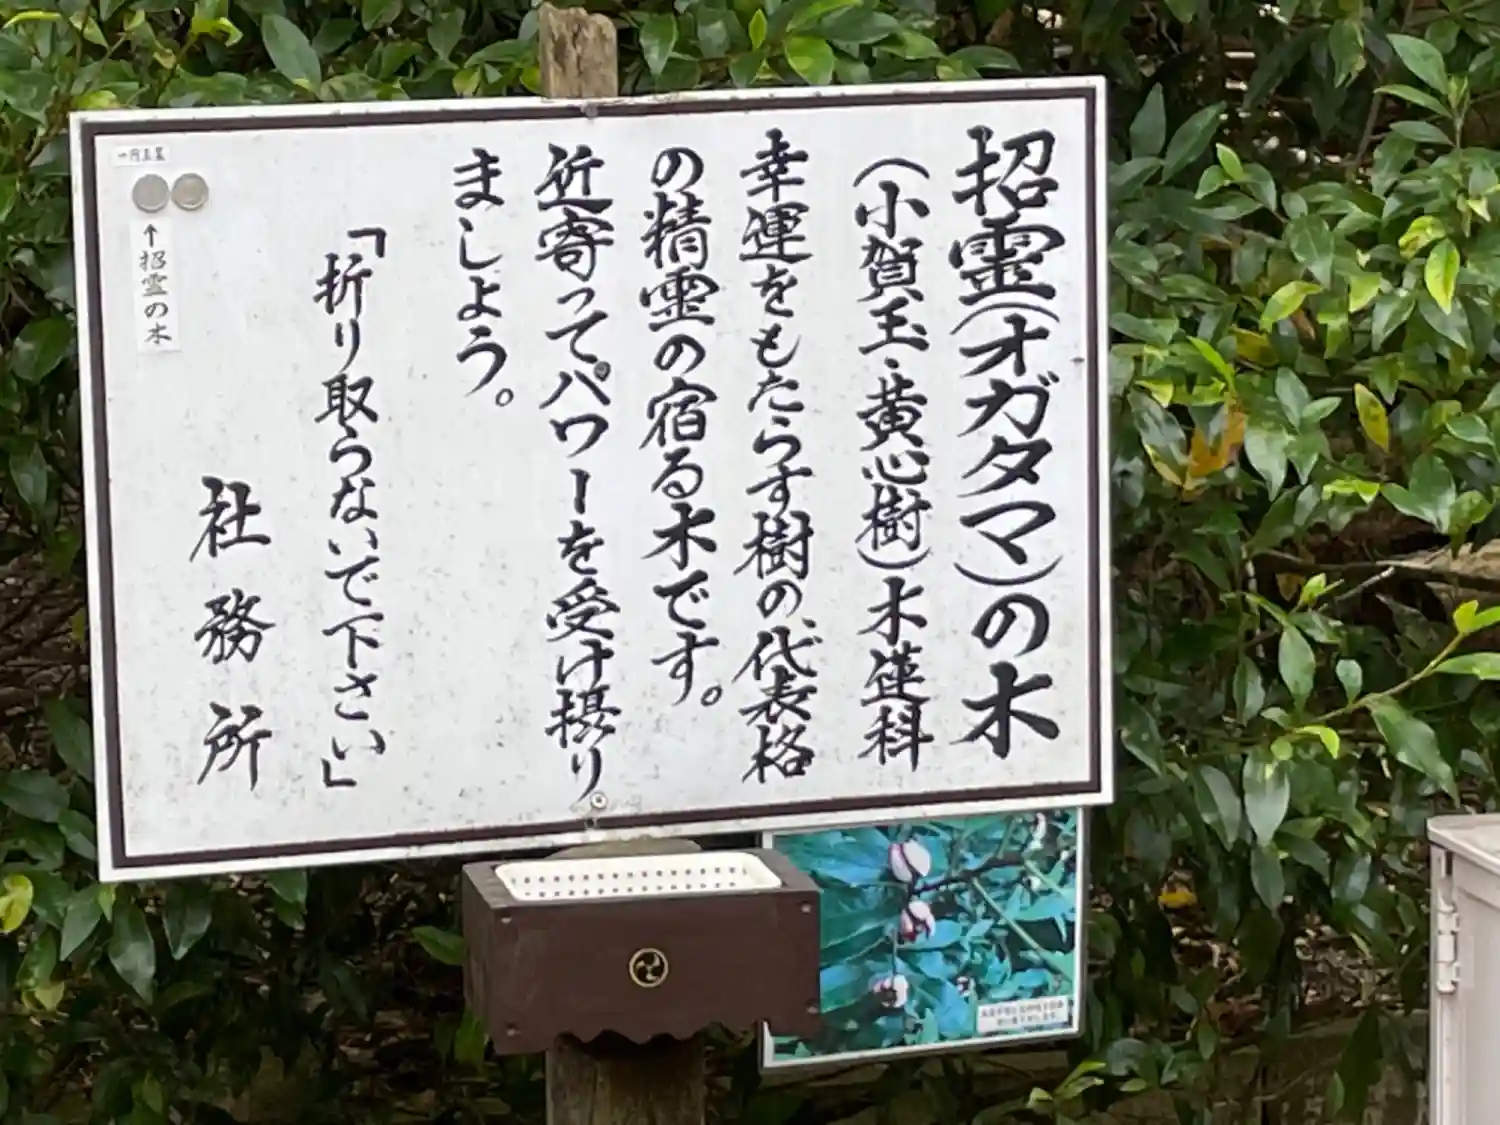 招霊(オガタマ)の木
(小賀玉・黄心樹)木蓮科
幸運をもたらす樹の、代表格
の精霊の宿る木です。
近寄ってパワーを受け摂り
ましょう。
「折り取らないで下さい」
社務所
一円玉
↑招霊の木